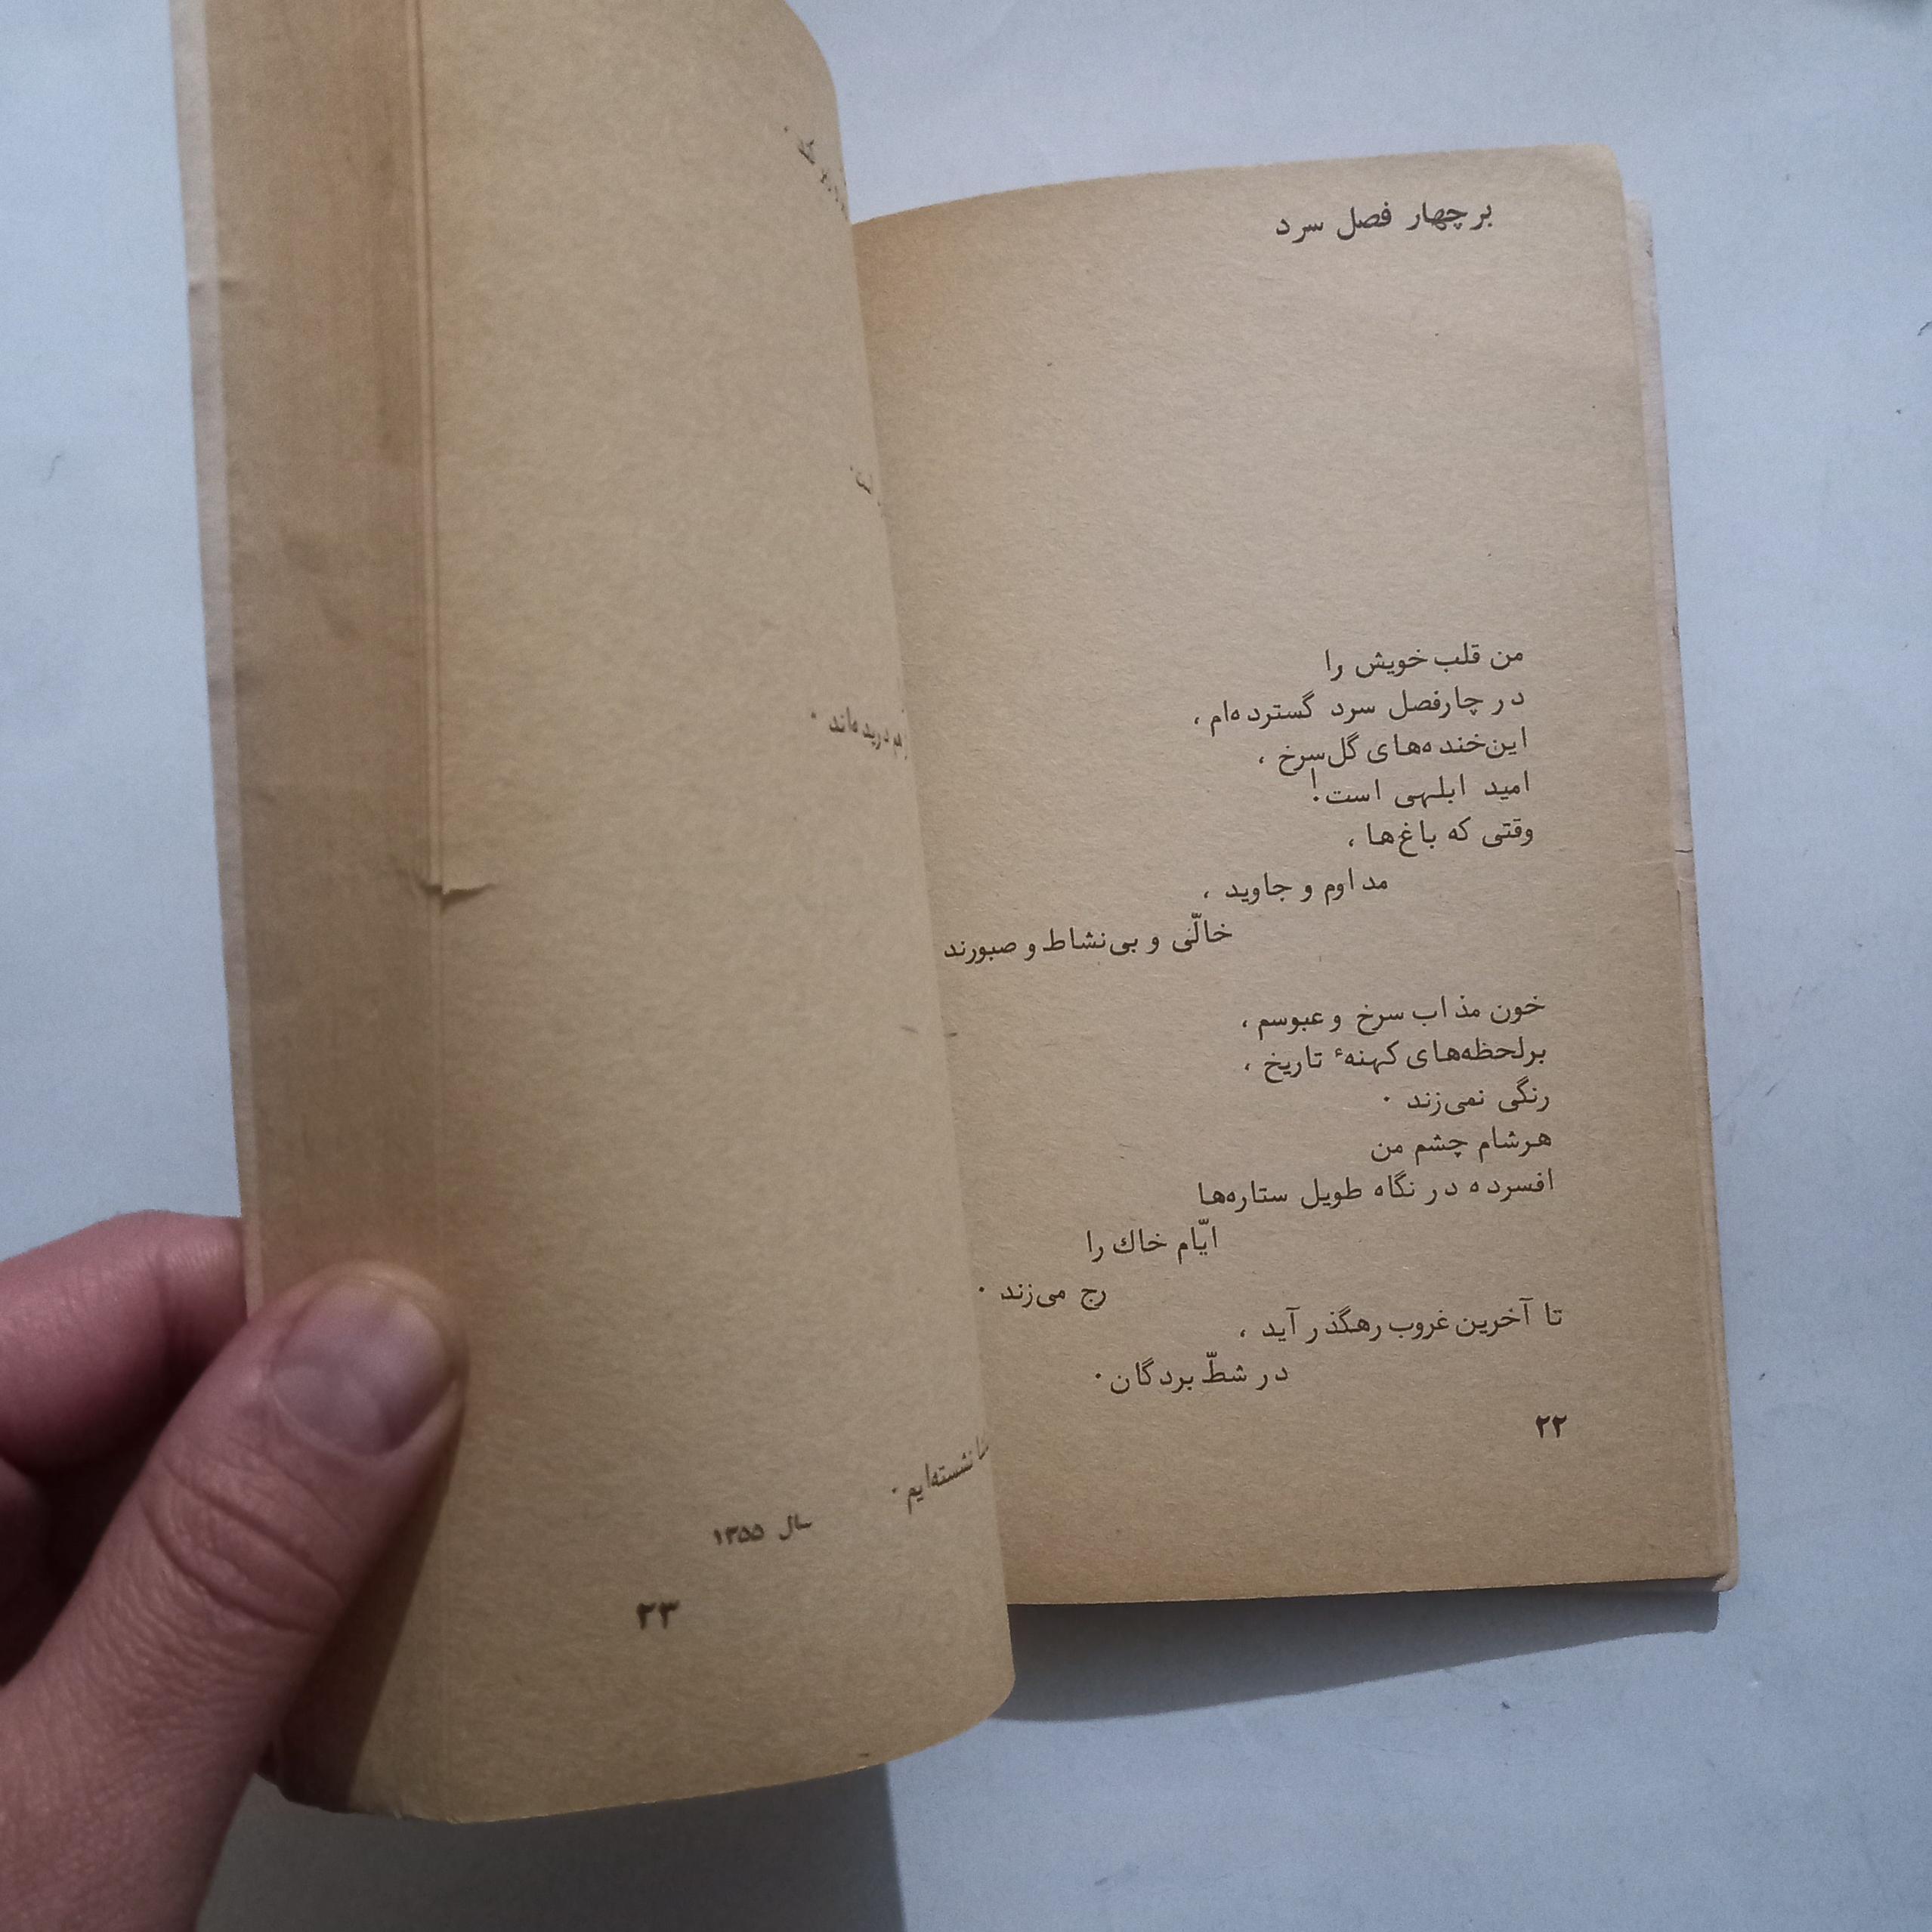 برچهار فصل سرد
من قلب خویش را
در چارفصل سرد گسترده‌ام ،
این‌خنده‌های گل‌سرخ ،
امید ابلهی است!
وقتی که باغ‌ها ،
مداوم و جاوید ،
خالّی و بی‌نشاط و صبورند
خون مذاب سرخ و عبوسم ،
برلحظه‌های کهنهٔ تاریخ ،
رنگی نمی‌زند .
هرشام چشم من
افسرده در نگاه طویل ستاره‌ها
ایّام خاك را
رج می‌زند .
تا آخرین غروب رهگذر آید ،
در شطّ بردگان .
۲۲
دریده‌اند .
نشسته‌ایم .
سال ۱۳۵۵
۲۳